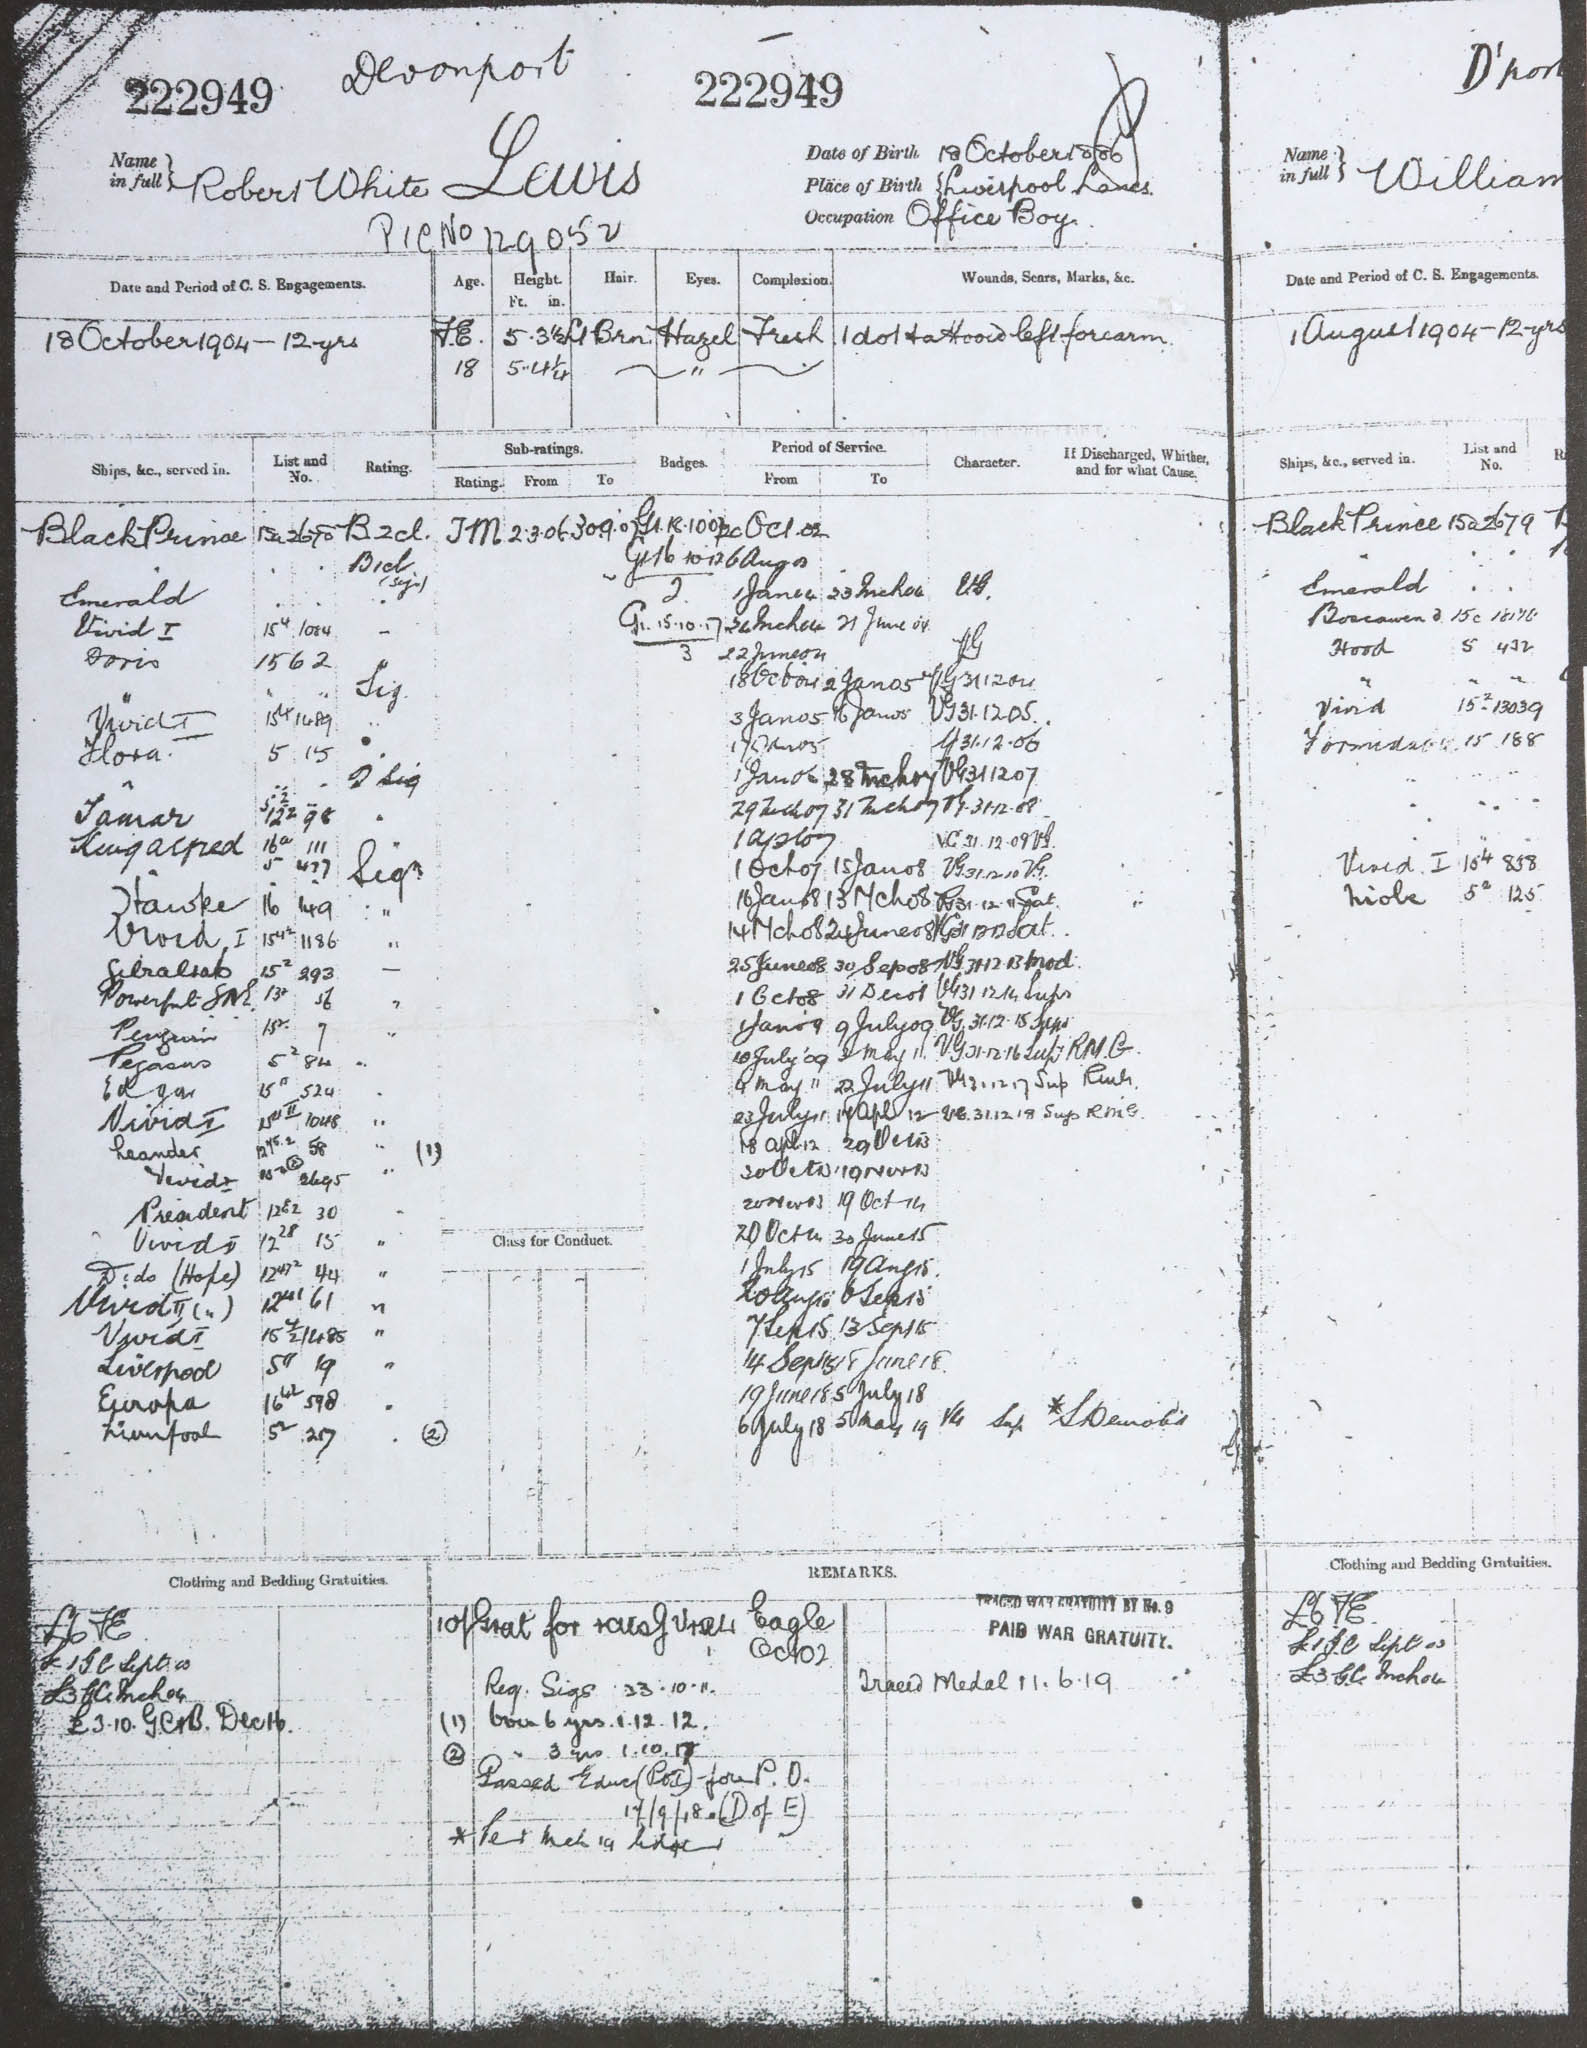 222949 Devonport 222949
Name in full } Robert White Lewis
Date of Birth 18 October 1886
Place of Birth { Liverpool Lancs.
Occupation Office Boy.
129052
Date and Period of C. S. Engagements. Age. Height. Ft. in. Hair. Eyes. Complexion. Wounds, Scars, Marks, &c.
18 October 1904 – 12 yrs 5.3½ Lt Brn Hazel Fresh 1 dot tattooed left forearm
18 5.4¼ "
Ships, &c., served in. List and No. Rating. Sub-ratings. Rating. From To Badges. Period of Service. From To Character. If Discharged, Whither, and for what Cause.
Black Prince B 2 cl. 2.3.06 Oct. 02
Emerald 2 VG.
Vivid I 15⁴ 1084 – 21 June 04
Doris 15 62 " 3 22 June 04 VG
" Sig. 18 Oct 04 2 Jan 05 VG 31.12.04
Vivid I 15⁴ 1489 " 3 Jan 05 16 Jan 05 VG 31.12.05.
Flora. 5 15 31.12.06
" 1 Jan 06 28 Mch 07 VG 31 12 07
Tamar 12² 98 " 29 Mch 07 31 Mch 07 VG. 31.12.08
King Alfred 16ᵃ 111 " 1 Apl 07 VG 31.12.09 VG.
5 477 Sig. 1 Oct 07 15 Jan 08 VG 31.12.10 VG.
Hawke 16 149 " 16 Jan 08 13 Mch 08 VG 31.12.11 Sat.
Vivid I 15⁴² 1186 " 14 Mch 08 24 June 08 VG 31 12 12 Sat.
Gibraltar 15² 293 — 25 June 08 30 Sep 08 VG 31.12.13 Mod.
Powerful 56 " 1 Oct 08 31 Dec 08 VG 31 12 14 Supr
Penguin 15² 7 " 1 Jan 09 9 July 09 VG 31.12.15 Supr
Pegasus 5² 84 " 10 July 09 3 May 11 VG 31.12.16 Sup R.M.G.
Edgar 15ᴵᴵ 524 " 4 May 11 22 July 11 VG 31.12.17 Sup RMG.
Vivid I 1048 " 23 July 11 17 Apl 12 VG. 31.12.18 Sup RMG
Leander 58 " (1) 18 Apl 12 29 Oct 13
Vivid I 2695 " 30 Oct 13 19 Nov 13
President 12⁵² 30 " 20 Nov 13 19 Oct 14
Vivid I 12²⁸ 15 " 20 Oct 14 30 June 15
Class for Conduct.
Dido (Hope) 12⁴⁷² 44 " 1 July 15 19 Aug 15.
Vivid II (") 12⁴⁴¹ 61 " 20 Aug 15 6 Sep 15
Vivid I 1485 " 7 Sep 15 13 Sep 15
Liverpool 5ᴵᴵ 19 " 14 Sep 15 18 June 18
Europa 16⁴² 598 " 19 June 18 5 July 18
Liverpool 5² 257 " (2) 6 July 18 5 May 19 VG Sup *S Demob'd
Clothing and Bedding Gratuities. REMARKS.
£6 FE
£1 G.C. Sept 03
£3 G.C. Mch 04
£3.10. G.C.&B. Dec 16.
10/ Grat for Eagle
Oct 02
Req. Sigs 23.10.11.
(1) 6 yrs. 1.12.12.
(2) " 3 yrs 1.10.18
Passed Educ (Pt I) for P.O.
17/9/18. (D of E)
* Per Mch 19
TRACED WAR GRATUITY BY No. 9
PAID WAR GRATUITY.
Traced Medal 11.6.19
D'port
Name in full } William
Date and Period of C. S. Engagements.
1 August 1904 – 12 yrs
Ships, &c., served in. List and No.
Black Prince 15a 2679
Emerald
Boscawen 15c
Hood 5 432
Vivid 15² 13039
Formidable 15 188
Vivid I 15⁴ 858
Niobe 5² 125
Clothing and Bedding Gratuities.
£6 FE.
£1 G.C. Sept 03
£3 G.C. Mch 04